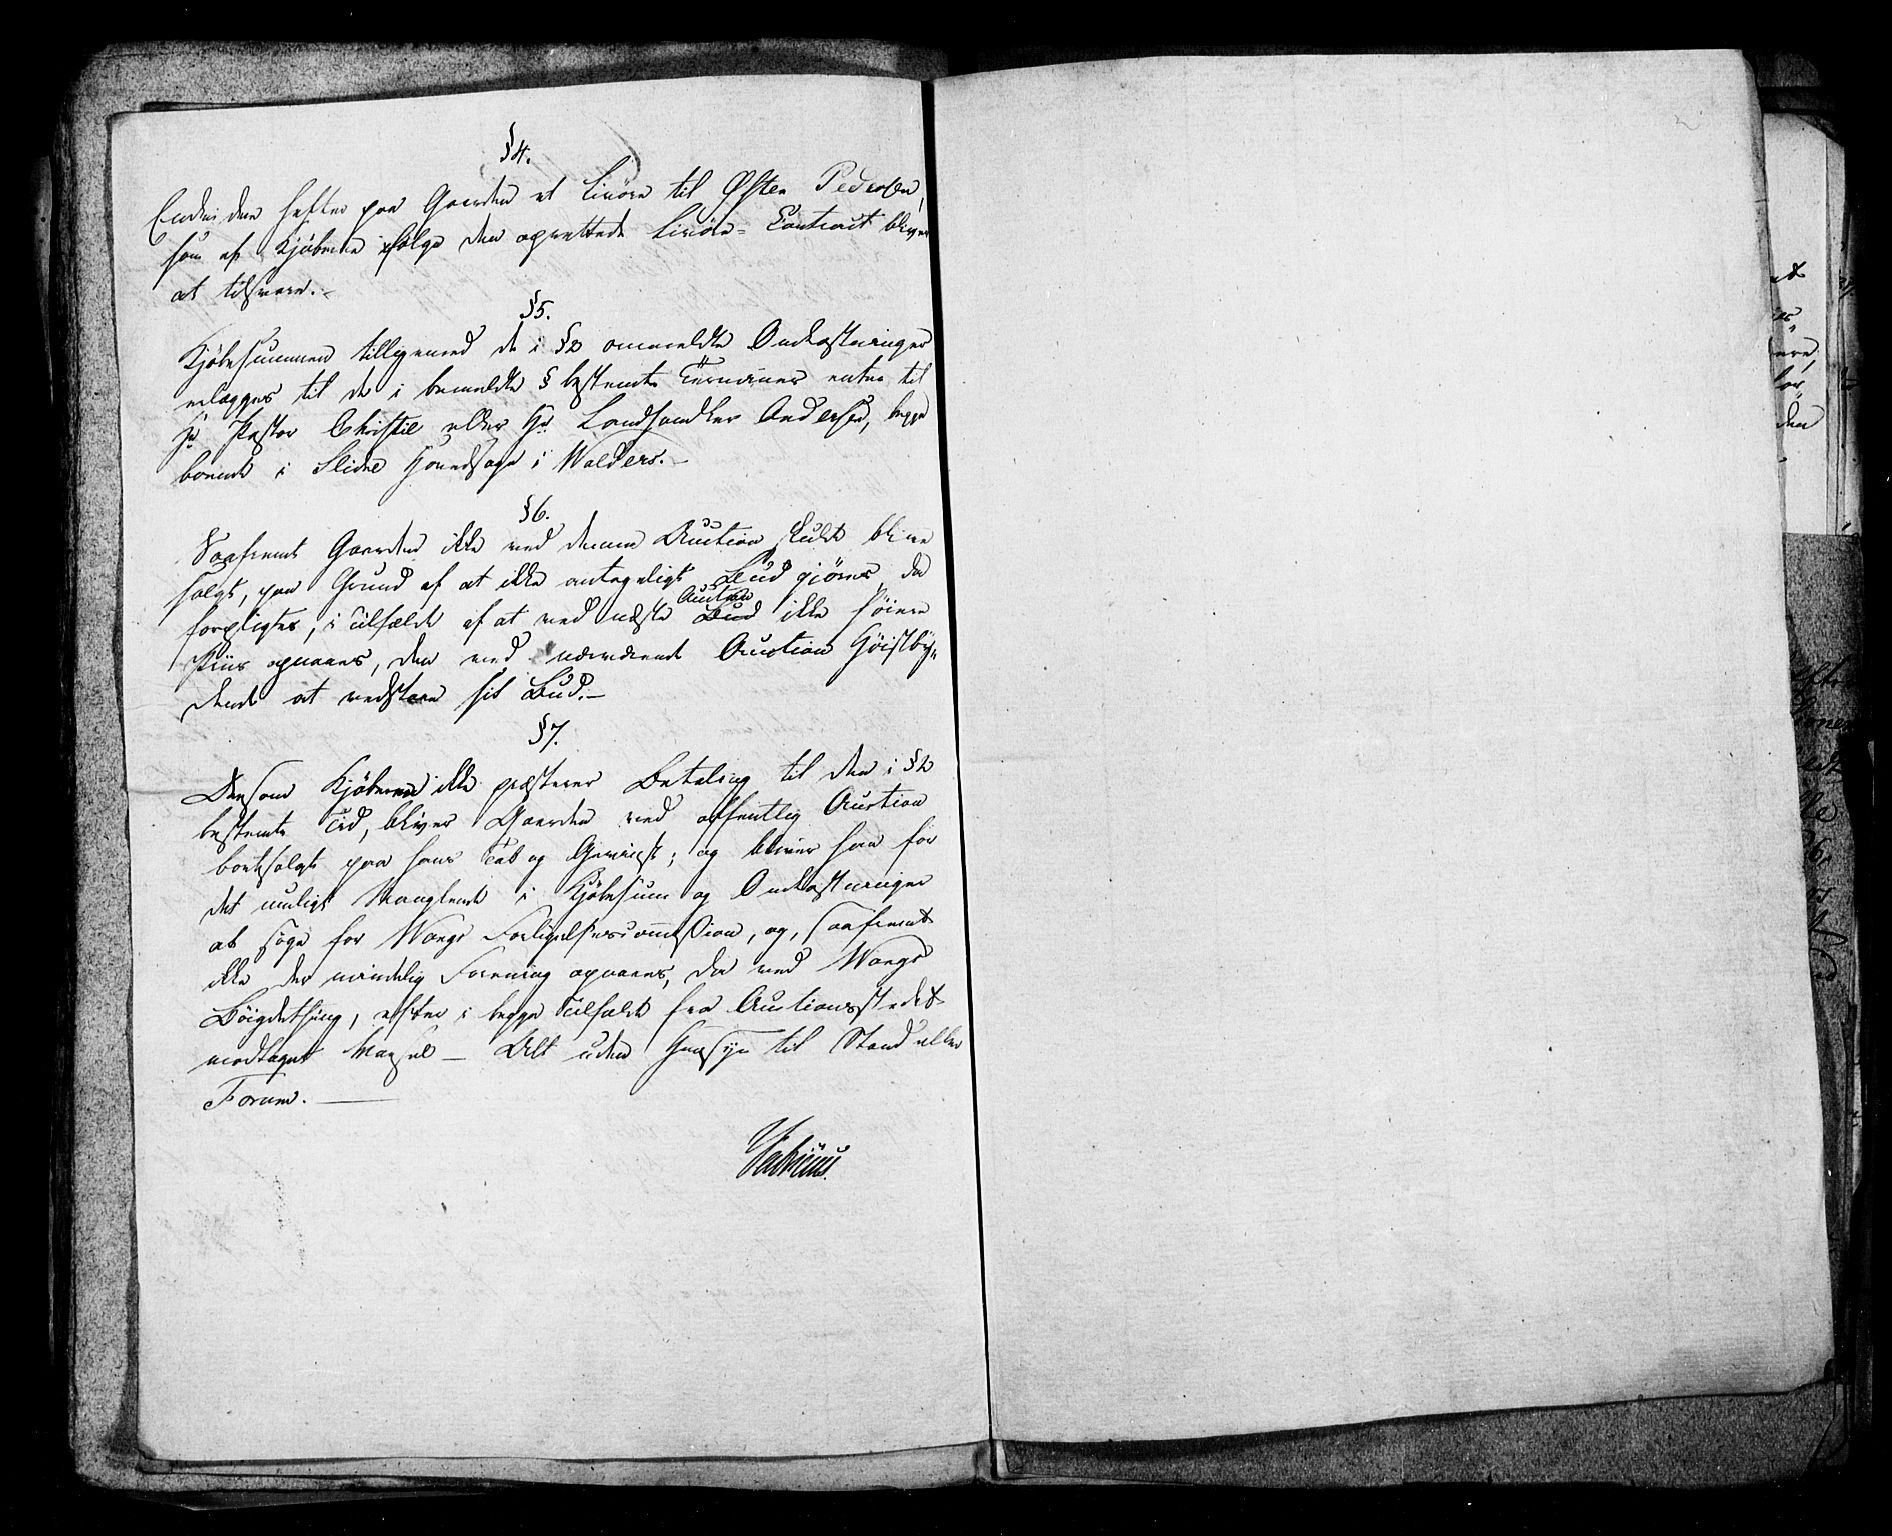 §4.
Endvidere hefter paa Gaarden et Livøre til Østen Pedersen,
som af Kjøberne ifølge den oprettede Livøre-Contract bliver
at tilsvare.-
§5.
Kjøbesummen tilligemed de i §2 ommeldte Omkostninger
erlægges til de i bemeldte § bestemte Terminer enten til
Hr Pastor Christie eller Hr Landhandler Andersen, begge
boende i Slidre Præstegield i Walders.-
§6.
Saafremt Gaarden ikke ved denne Auction skulde blive
solgt, paa Grund af at ikke antageligt Bud gjöres, da
forpligtes, i Tilfælde af at ved næste Auction ikke høiere
Priis opnaaes, den ved nærværende Auction Høistby„
dende at vedstaae sit Bud.-
§7.
Dersom Kjøberen ikke præsterer Betaling til den i §2
bestemte Tid, bliver Gaarden ved offentlig Auction
bortsolgt paa hans Tab og Gevinst; og bliver han for
det muligt Manglende i Kjøbesum og Omkostninger
at søge for Wangs Forligelsescommission, og, saafremt
ikke der mindelig Forening opnaaes, da ved Wangs
Bøigdething, efter i begge Tilfælde fra Auctionsstedet
modtaget Varsel - Alt uden Hensyn til Stand eller
Forum.